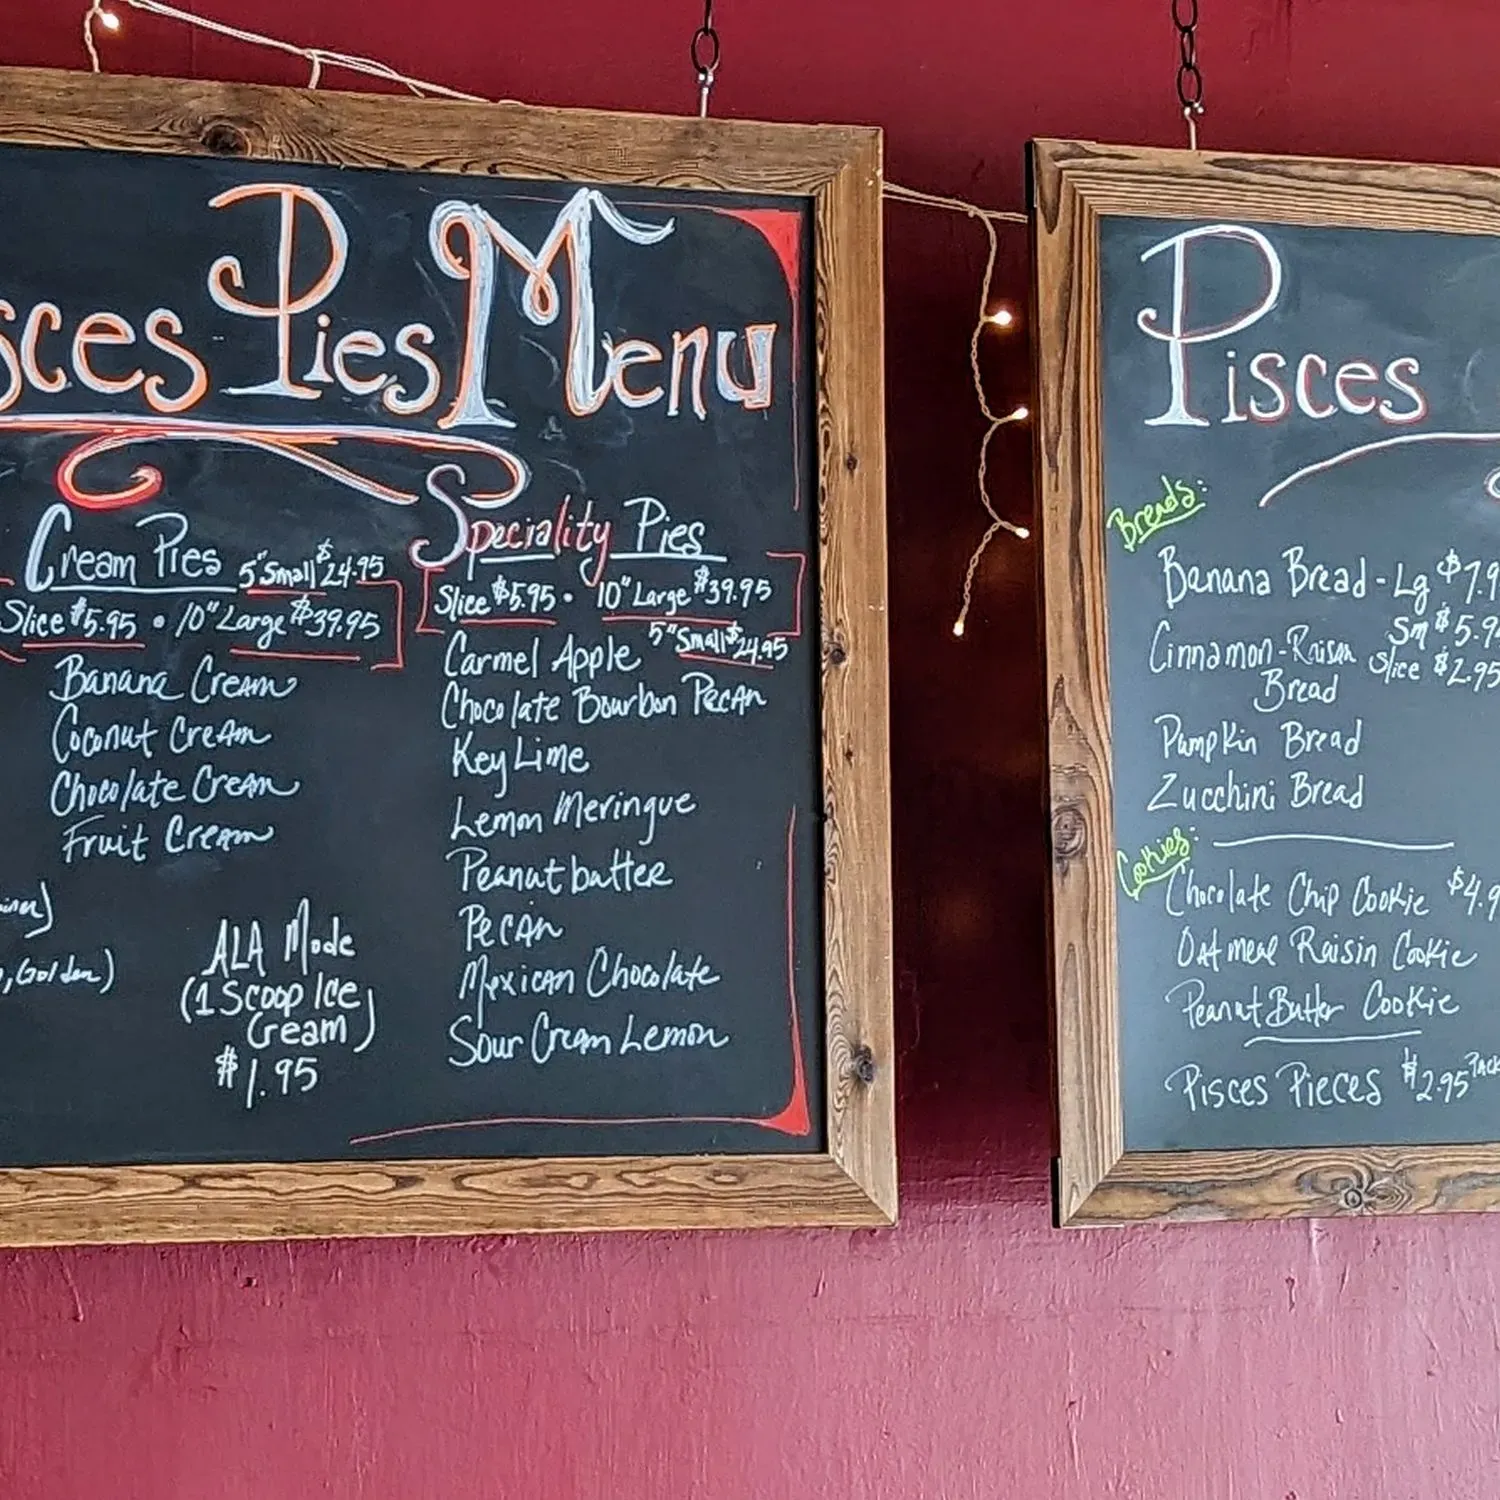 sces Pies Menu
Cream Pies 5" Small $24.95
Slice $5.95 • 10" Large $39.95
Banana Cream
Coconut Cream
Chocolate Cream
Fruit Cream
, Golden)
ALA Mode
(1 Scoop Ice
Cream)
$1.95
Speciality Pies
Slice $5.95 • 10" Large $39.95
5" Small $24.95
Carmel Apple
Chocolate Bourbon Pecan
Key Lime
Lemon Meringue
Peanut butter
Pecan
Mexican Chocolate
Sour Cream Lemon
Pisces
Breads:
Banana Bread - Lg $7.9
Sm $5.9
Cinnamon-Raisan Slice $2.95
Bread
Pumpkin Bread
Zucchini Bread
Cookies:
Chocolate Chip Cookie $4.9
Oatmeal Raisin Cookie
Peanut Butter Cookie
Pisces Pieces $2.95 Pack